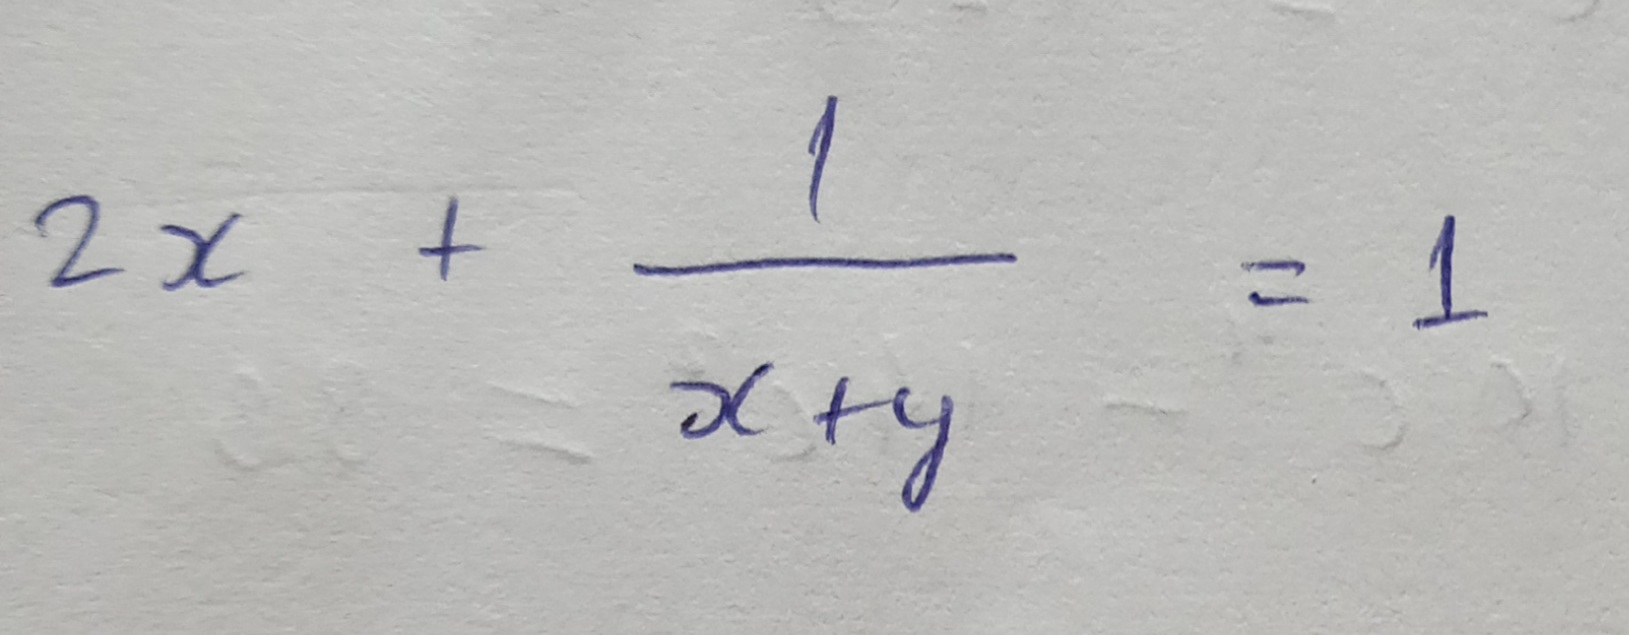 2x + 1/(x+y) = 1